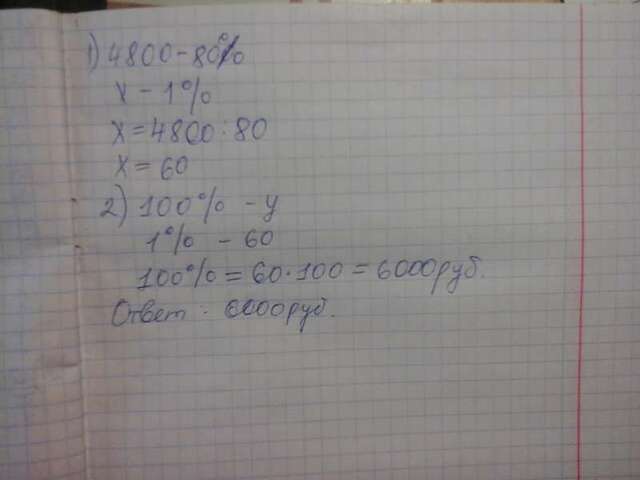 1) 4800 - 80%
x - 1%
x = 4800 : 80
x = 60
2) 100% - y
1% - 60
100% = 60 · 100 = 6000 руб.
Ответ : 6000 руб.